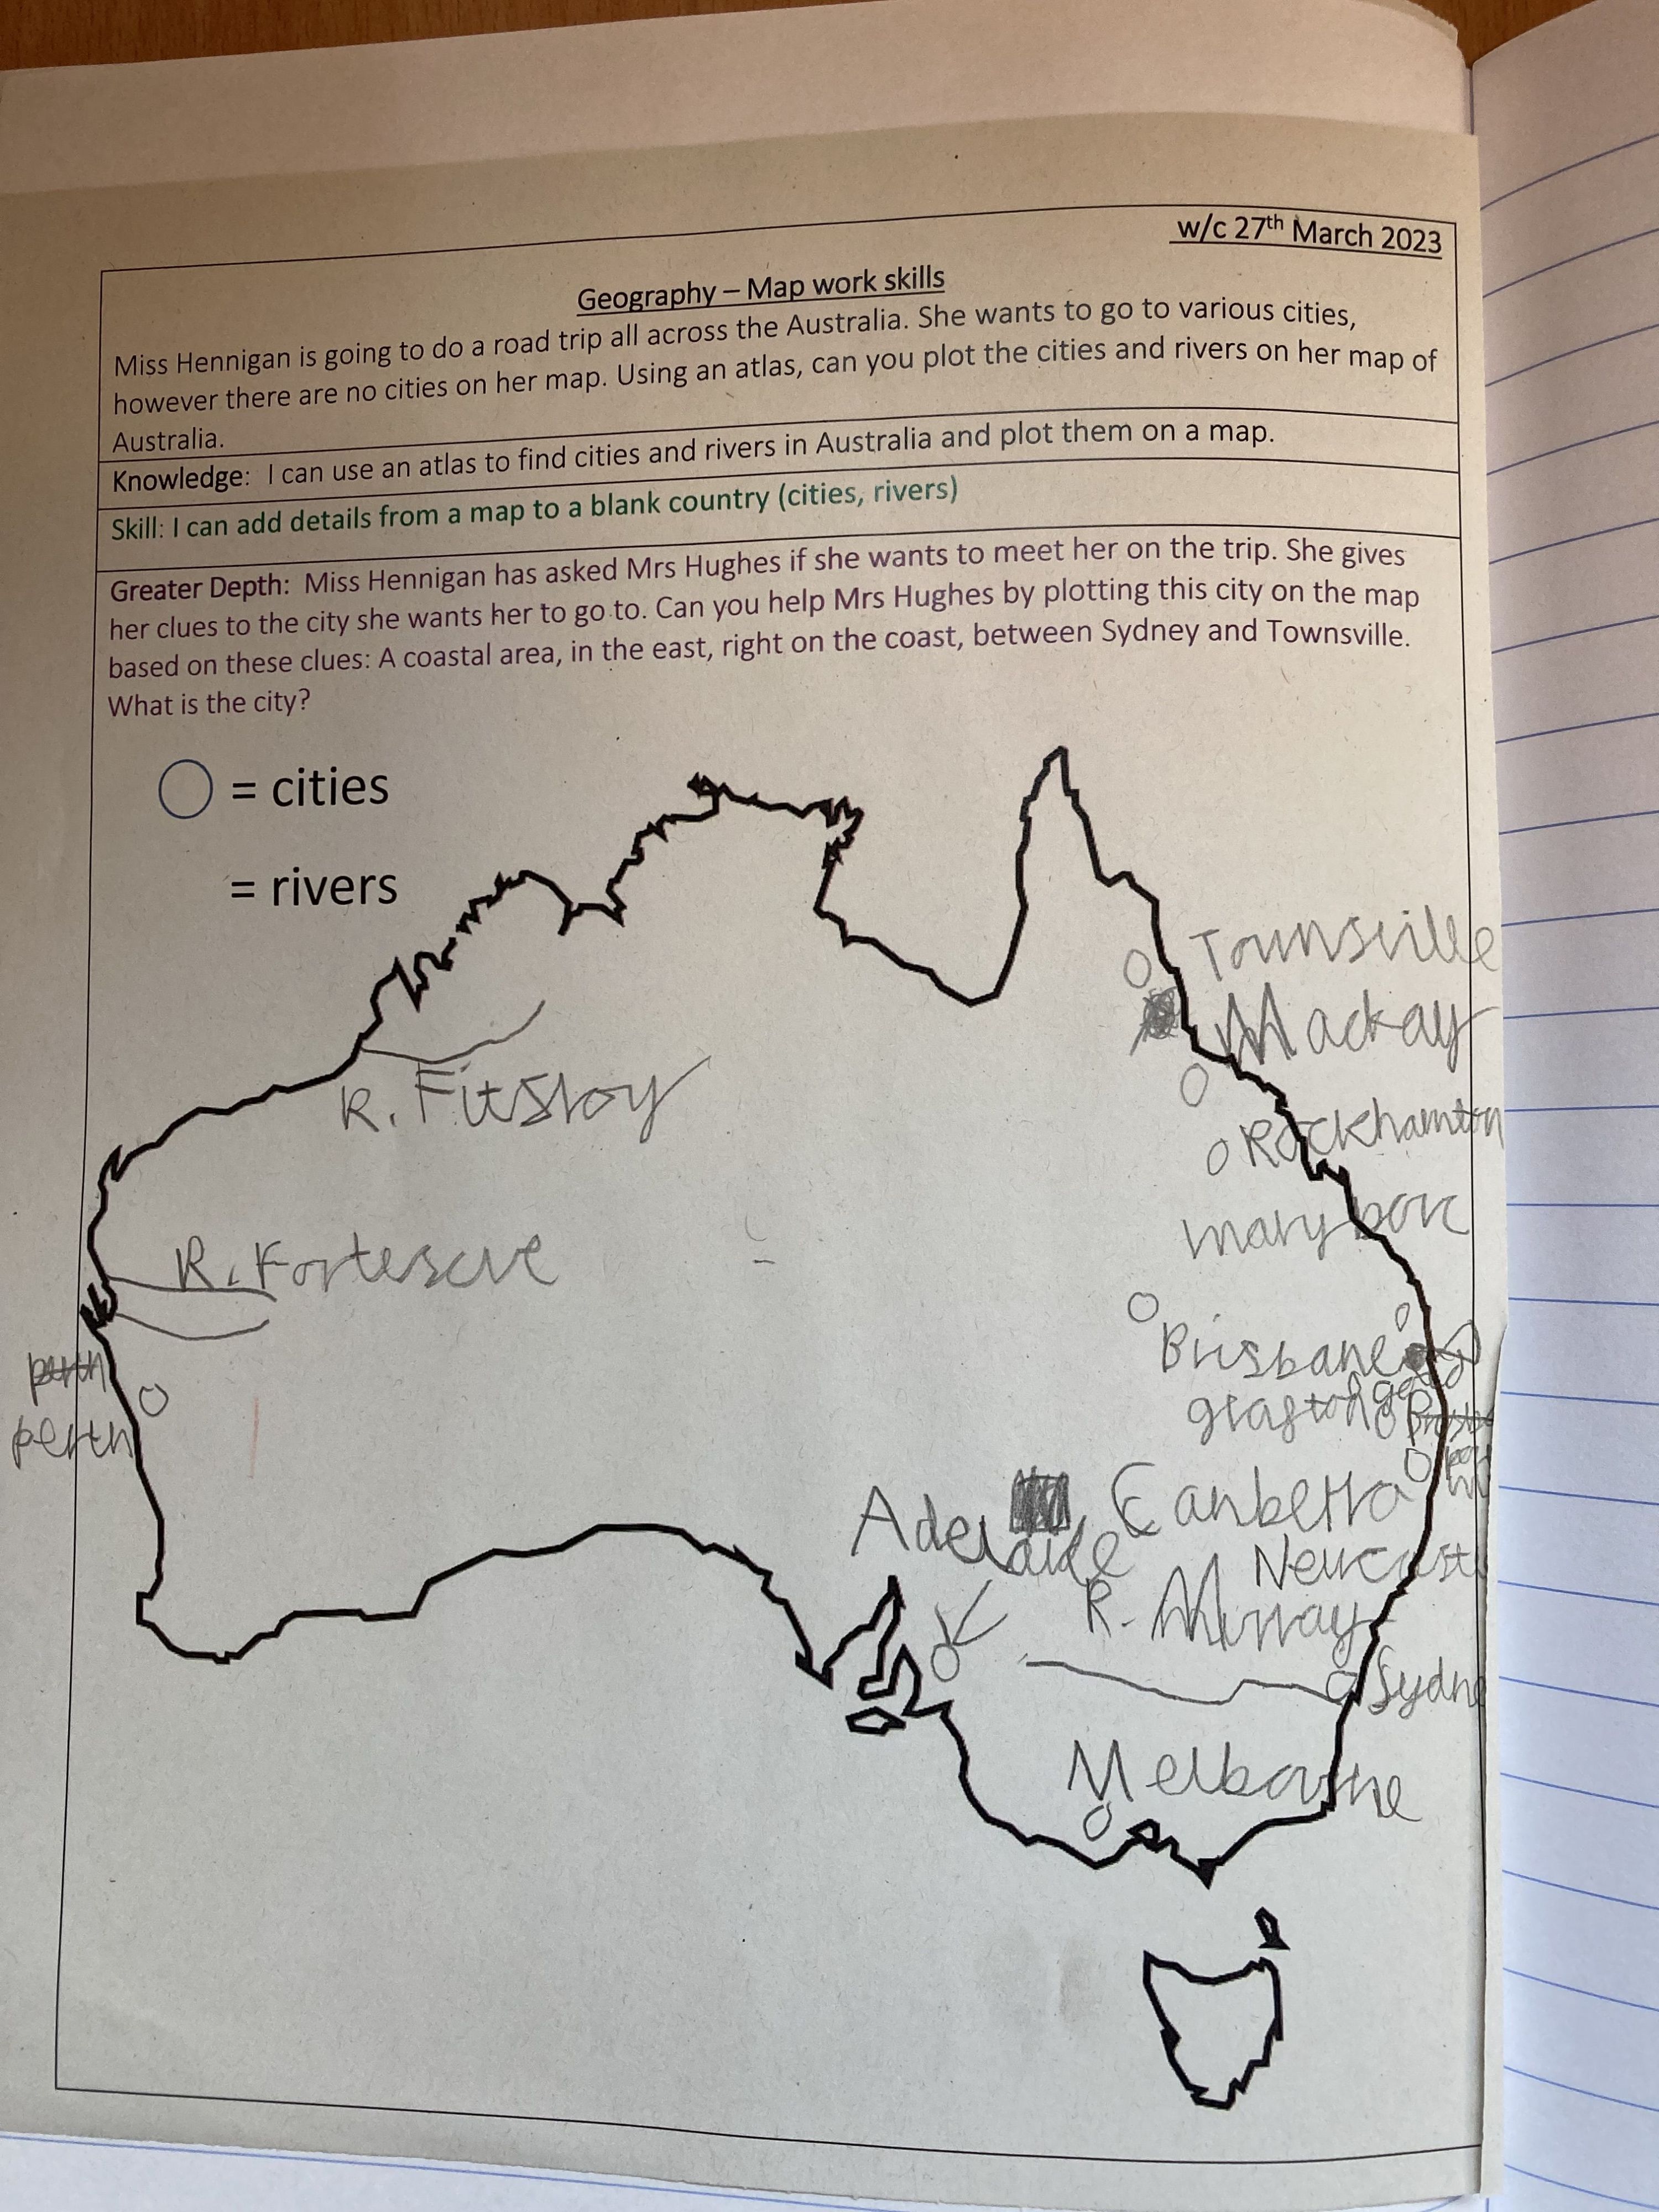 w/c 27th March 2023
Geography – Map work skills
Miss Hennigan is going to do a road trip all across the Australia. She wants to go to various cities,
however there are no cities on her map. Using an atlas, can you plot the cities and rivers on her map of
Australia.
Knowledge: I can use an atlas to find cities and rivers in Australia and plot them on a map.
Skill: I can add details from a map to a blank country (cities, rivers)
Greater Depth: Miss Hennigan has asked Mrs Hughes if she wants to meet her on the trip. She gives
her clues to the city she wants her to go to. Can you help Mrs Hughes by plotting this city on the map
based on these clues: A coastal area, in the east, right on the coast, between Sydney and Townsville.
What is the city?
= cities
= rivers
Townsville
Mackay
R. Fitsroy
Rockhamton
mary bore
R. Fortescue
Brisbane
perth
grafton
perth
Canberra
Adelaide
Newcast
R. Murray
Sydne
Melbourne